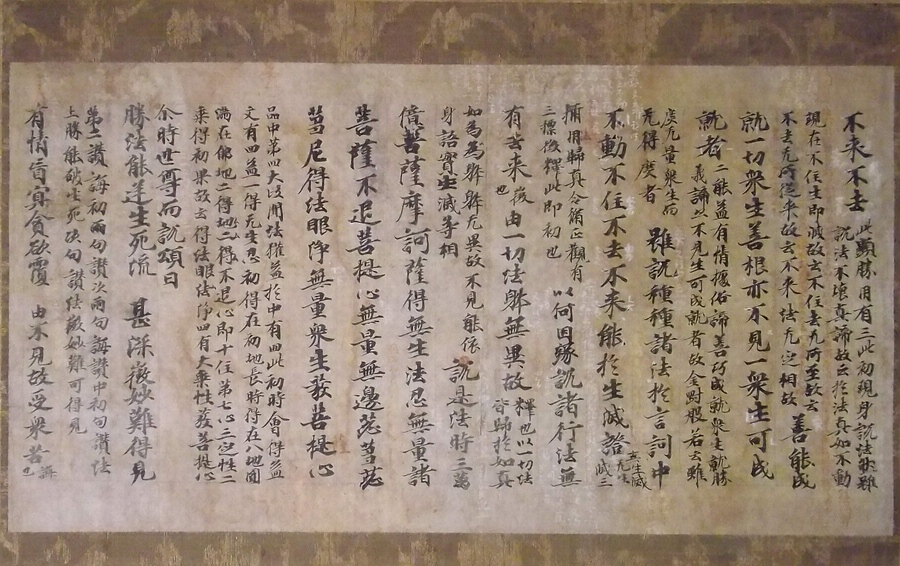 不来不去 此顕勝用有三此初現身説法歟雖
説法不壊真諦故云於法真如不動
現在不住生即滅故云不住去无所至故云
不去无所従来故云不来法无定相故 善能成
就一切衆生善根亦不見一衆生可成
就者 二能益有情據俗諦善巧成就衆生就勝
義諦器不見生可成就者故金対般若云雖
度无量衆生而
无得度者 雖説種種諸法於言詞中
不動不住不去不来能於生滅證 無生滅
三摽徴釋此即初也 以何因縁説諸行法無
有去来 後也 由一切法躰無異故 釋也以一切法
皆歸於如真
如為為躰躰无異故不見能依
身語實生滅等相 説是法時三萬
億菩薩摩訶薩得無生法忍無量諸
菩薩不退菩提心無量無邊苾芻苾
芻尼得法眼淨無量衆生發菩提心
品中第四大段聞法獲益於中有四此初時會得益
文有四益一得无生忍初得在初地長時得在八地圓
滿在佛地二得不退心即十住第七心三定性二
乗得初果故云得法眼法淨四有大乗性發菩提心
尒時世尊而説頌曰
勝法能逆生死流 甚深微妙難得見
第二讃誨初兩句讃次兩句誨讃中初句讃法
上勝能破生死次句讃法微妙難可得見
有情盲冥貪欲覆 由不見故受衆苦 誨也